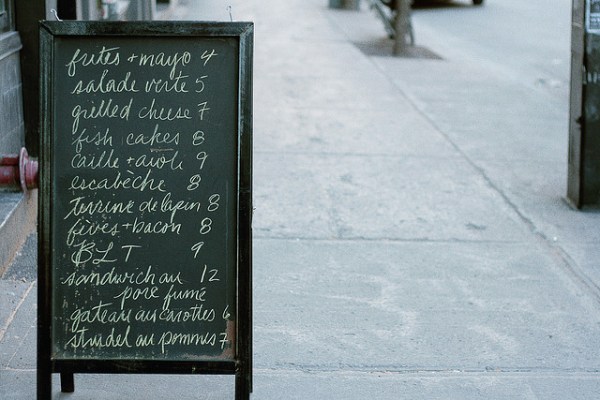 frites + mayo 4
salade verte 5
grilled cheese 7
fish cakes 8
caille + aïoli 9
escabèche 8
terrine de lapin 8
fèves + bacon 8
BLT 9
sandwich au 12
porc fumé
gateau aux carottes 6
strudel au pommes 7